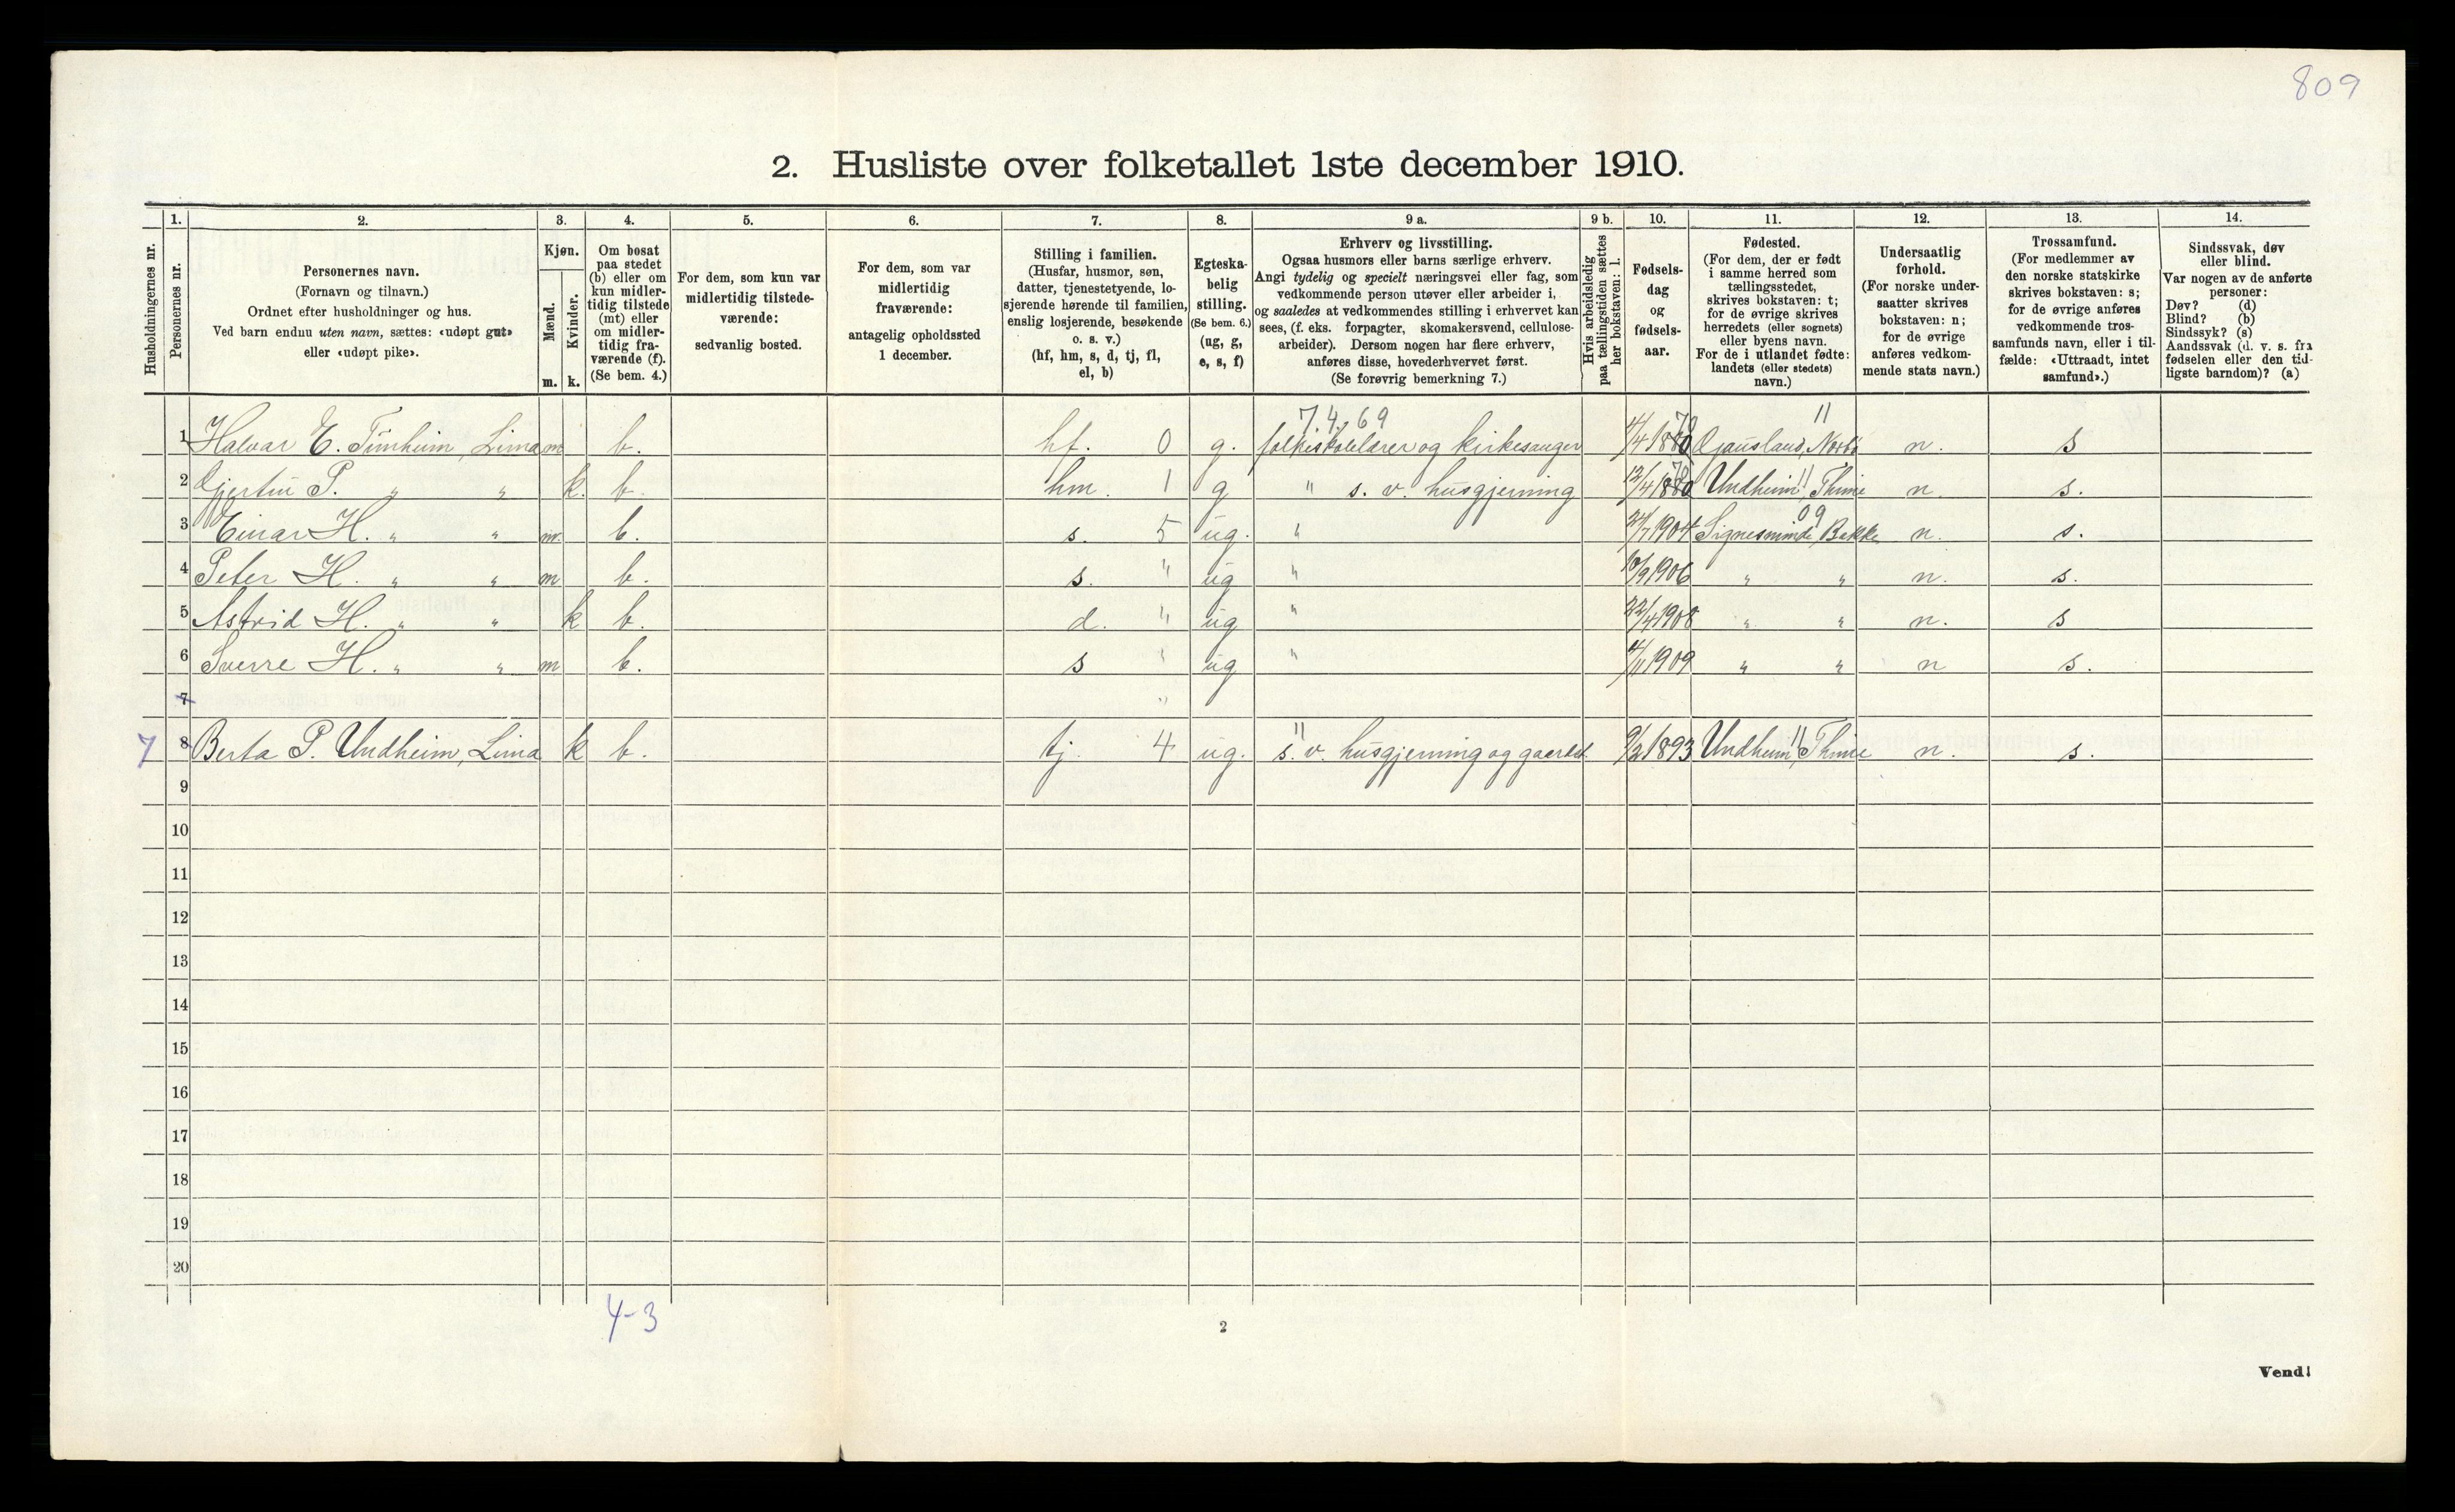 809
2. Husliste over folketallet 1ste december 1910.
Husholdningernes nr.
1. Personernes nr.
2. Personernes navn.
(Fornavn og tilnavn.)
Ordnet efter husholdninger og hus.
Ved barn endnu uten navn, sættes: «udøpt gut»
eller «udøpt pike».
3. Kjøn.
Mænd. m.
Kvinder. k.
4. Om bosat
paa stedet
(b) eller om
kun midler-
tidig tilstede
(mt) eller
om midler-
tidig fra-
værende (f).
(Se bem. 4.)
5. For dem, som kun var
midlertidig tilstede-
værende:
sedvanlig bosted.
6. For dem, som var
midlertidig
fraværende:
antagelig opholdssted
1 december.
7. Stilling i familien.
(Husfar, husmor, søn,
datter, tjenestetyende, lo-
sjerende hørende til familien,
enslig losjerende, besøkende
o. s. v.)
(hf, hm, s, d, tj, fl,
el, b)
8. Egteska-
belig
stilling.
(Se bem. 6.)
(ug, g,
e, s, f)
9 a. Erhverv og livsstilling.
Ogsaa husmors eller barns særlige erhverv.
Angi tydelig og specielt næringsvei eller fag, som
vedkommende person utøver eller arbeider i,
og saaledes at vedkommendes stilling i erhvervet kan
sees, (f. eks. forpagter, skomakersvend, cellulose-
arbeider). Dersom nogen har flere erhverv,
anføres disse, hovederhvervet først.
(Se forøvrig bemerkning 7.)
9 b. Hvis arbeidsledig
paa tællingstiden sættes
her bokstaven: l.
10. Fødsels-
dag
og
fødsels-
aar.
11. Fødested.
(For dem, der er født
i samme herred som
tællingsstedet,
skrives bokstaven: t;
for de øvrige skrives
herredets (eller sognets)
eller byens navn.
For de i utlandet fødte:
landets (eller stedets)
navn.)
12. Undersaatlig
forhold.
(For norske under-
saatter skrives
bokstaven: n;
for de øvrige
anføres vedkom-
mende stats navn.)
13. Trossamfund.
(For medlemmer av
den norske statskirke
skrives bokstaven: s;
for de øvrige anføres
vedkommende tros-
samfunds navn, eller i til-
fælde: «Uttraadt, intet
samfund».)
14. Sindssvak, døv
eller blind.
Var nogen av de anførte
personer:
Døv? (d)
Blind? (b)
Sindssyk? (s)
Aandssvak (d. v. s. fra
fødselen eller den tid-
ligste barndom)? (a)
7.4.69 78 11
1 Halvar E. Timheim, Lima m b. hf. 0 g. folkeskolelærer og kirkesanger 4/4 1880 Gausland, Norbø n. s
2 Gjertin P. " " k. b. hm. 1 g " s. v. husgjerning 12/4 1880 Undheim, Thime n. s.
09
3 Einar H. " " m. b. s. 5 ug. " 24/7 1904 Signesminde, Bakke n. s.
4 Peter H. " " m b. s. " ug " 10/9 1906 " " n. s.
5 Astrid H. " " k b. d. " ug " 22/4 1908 " " n. s
6 Sverre H. " " m b. s " ug " 4/11 1909 " " n s.
7 "
7 8 Berta P. Undheim, Lima k b. tj. 4 ug. s. v. husgjerning og 9/2 1893 Undheim, Thime n. s.
9
10
11
12
13
14
15
16
17
18
19
20
4-3
2
Vend!